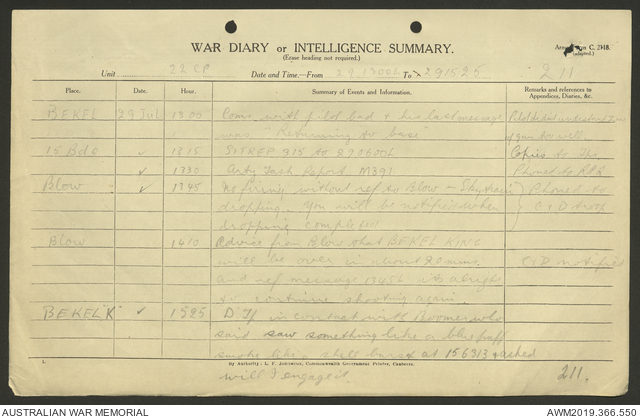 WAR DIARY or INTELLIGENCE SUMMARY.
(Erase heading not required.)
C. 2118.
(Adapted.)
Unit 22 CP Date and Time.—From 291300L To 291525 211
Place. Date. Hour. Summary of Events and Information. Remarks and references to Appendices, Diaries, &c.
BEKEL 29 Jul 1300 Coms with pilot bad & his last message
was "Returning to base"
15 Bde ✓ 1315 SITREP 915 to 290600L Copies to
✓ 1330 Arty Task Report M391 Phoned to
Blow ✓ 1345 No firing without ref to Blow –
dropping. You will be notified when
dropping completed
Phoned to C & D troops
Blow 1410 Advice from Blow that BEKEL KING
will be over in about 20 mins.
and ref message 1345L its alright
to continue shooting again.
C & D notified
BEKEL "K" ✓ 1525 D Tp in contact with Boomer who
said saw something like a blue puff
smoke like a shell burst at 156313 & asked
will I engage it.
1. By Authority: L. F. Johnston, Commonwealth Government Printer, Canberra.
211.
AUSTRALIAN WAR MEMORIAL AWM2019.366.550